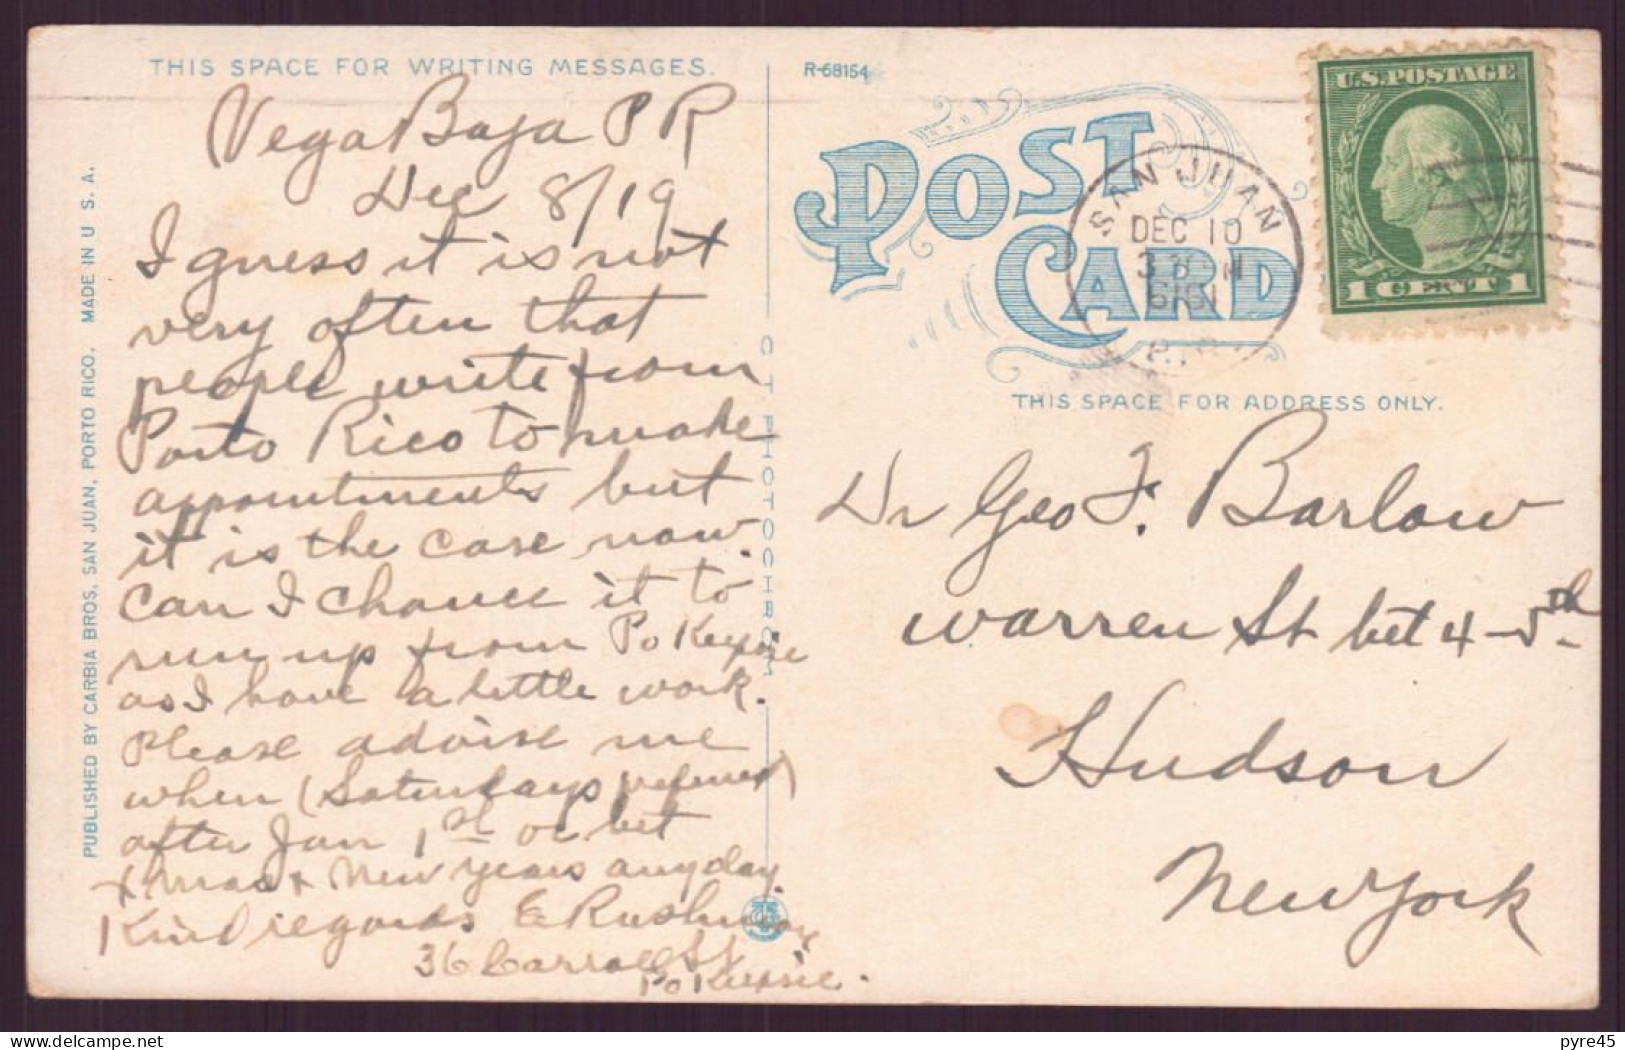 THIS SPACE FOR WRITING MESSAGES.
Vega Baja P R
Dec 8/19
I guess it is not
very often that
people write from
Porto Rico to make
appointments but
it is the case now.
Can I chance it to
run up from Po Keepsie
as I have a little work.
Please advise me
when (Saturdays preferred)
after Jan 1st or bet
Xmas + New years any day.
Kind regards E Rushmore
36 Carroll St
Po Keepsie.
PUBLISHED BY CARBIA BROS. SAN JUAN, PORTO RICO. MADE IN U. S. A.
C T PHOTOCHROM
R-68154
POST CARD
SAN JUAN
DEC 10
P.R.
U.S. POSTAGE
1 CENT 1
THIS SPACE FOR ADDRESS ONLY.
Dr Geo F. Barlow
Warren St bet 4-5th
Hudson
New York
pyre45